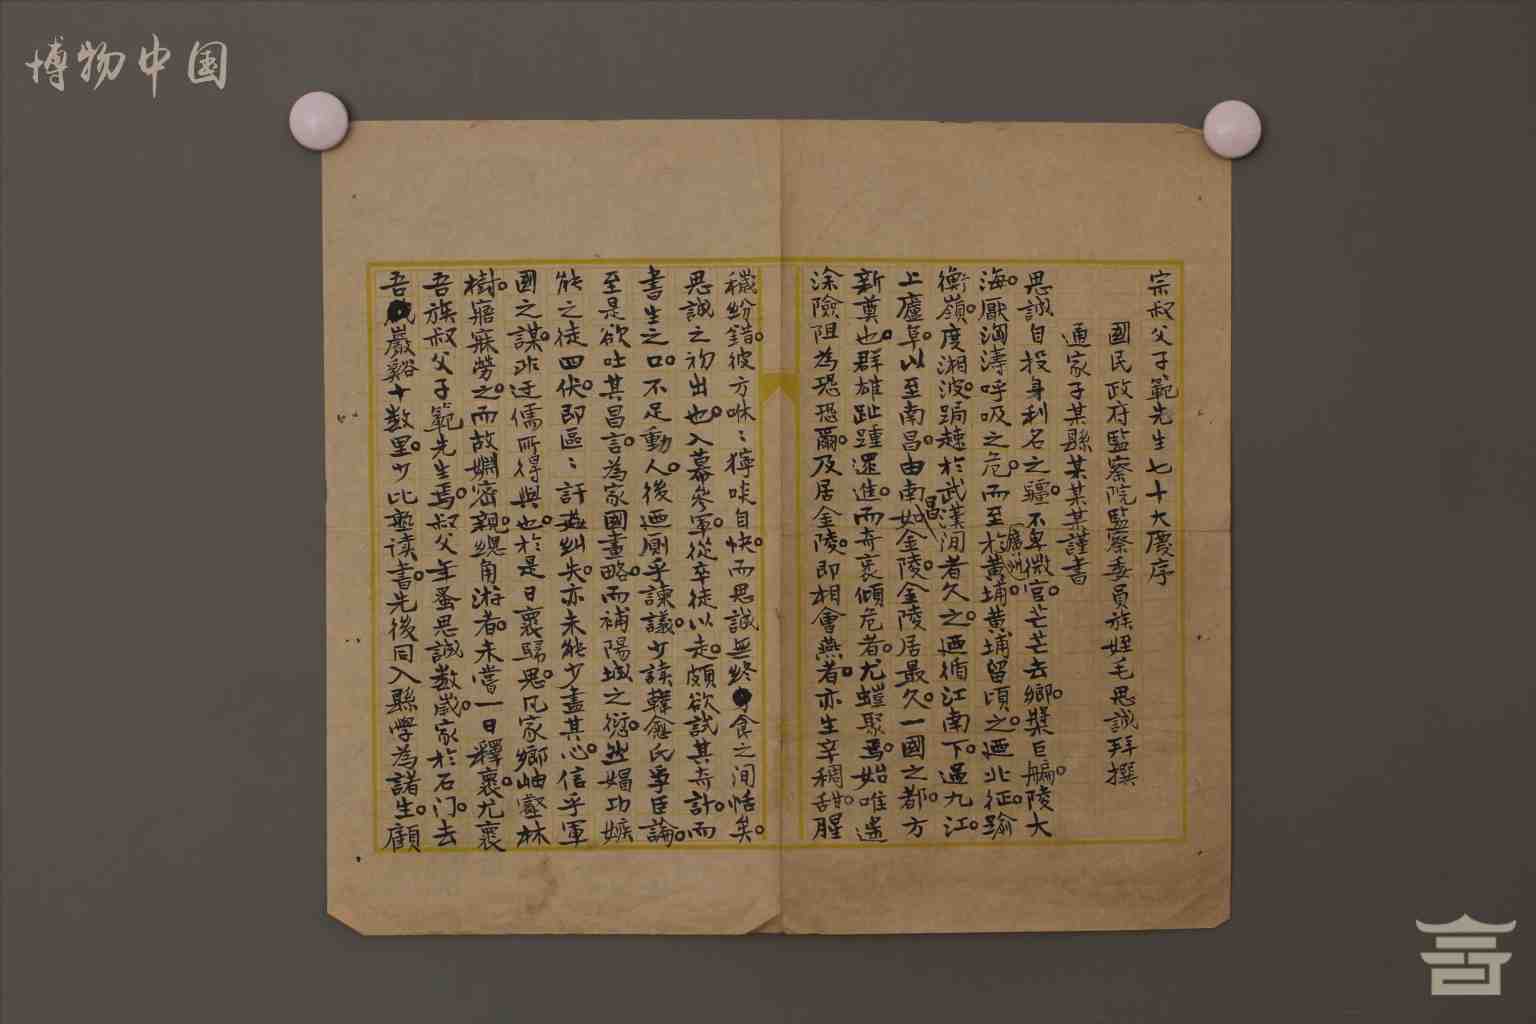 博物中国
宗叔父子範先生七十大慶序
國民政府監察院監察委員族姪毛思誠拜撰
通家子某縣某某某謹書
思誠自投身利名之疆。不卑微官。芒芒去鄉。獎巨艑。陵大
海。厭洶濤呼吸之危。而至於廣州之黃埔。黃埔留頃之。迺北征。踰
衡嶺。度湘波。踊趠於武漢閒者久之。迺循江南下。過九江。
上廬阜。以至南昌。由南昌如金陵。金陵居最久。一國之都。方
新奠也。群雄趾踵還進。而奇衺傾危者。尤螘聚焉。始唯遙
涂險阻為恐恐爾。及居金陵。即相會燕者。亦生辛稠甜。腥
穢紛錯。彼方咻咻獰啖自快。而思誠無終食之閒恬矣。
思誠之初出也。入幕參軍。從卒徒以走。頗欲試其奇計。而
書生之口。不足動人。後迺廁乎諫議。少讀韓愈氏爭臣論。
至是欲吐其昌言。為家國畫略。而補陽城之愆。迆媢功嫉
能之徒四伏。即區區訐蟲糾失。亦未能少盡其心。信乎軍
國之謀。非迂儒所得與也。於是日褱歸思。凡家鄉岫壑林
樹。寤寐勞之。而故嫺密親。總角游者。未嘗一日釋褱。尤褱
吾族叔父子範先生焉。叔父年蚤思誠數歲。家於石门。去
吾巖谿十數里。少比塾读書。先後同入縣學為諸生。顧